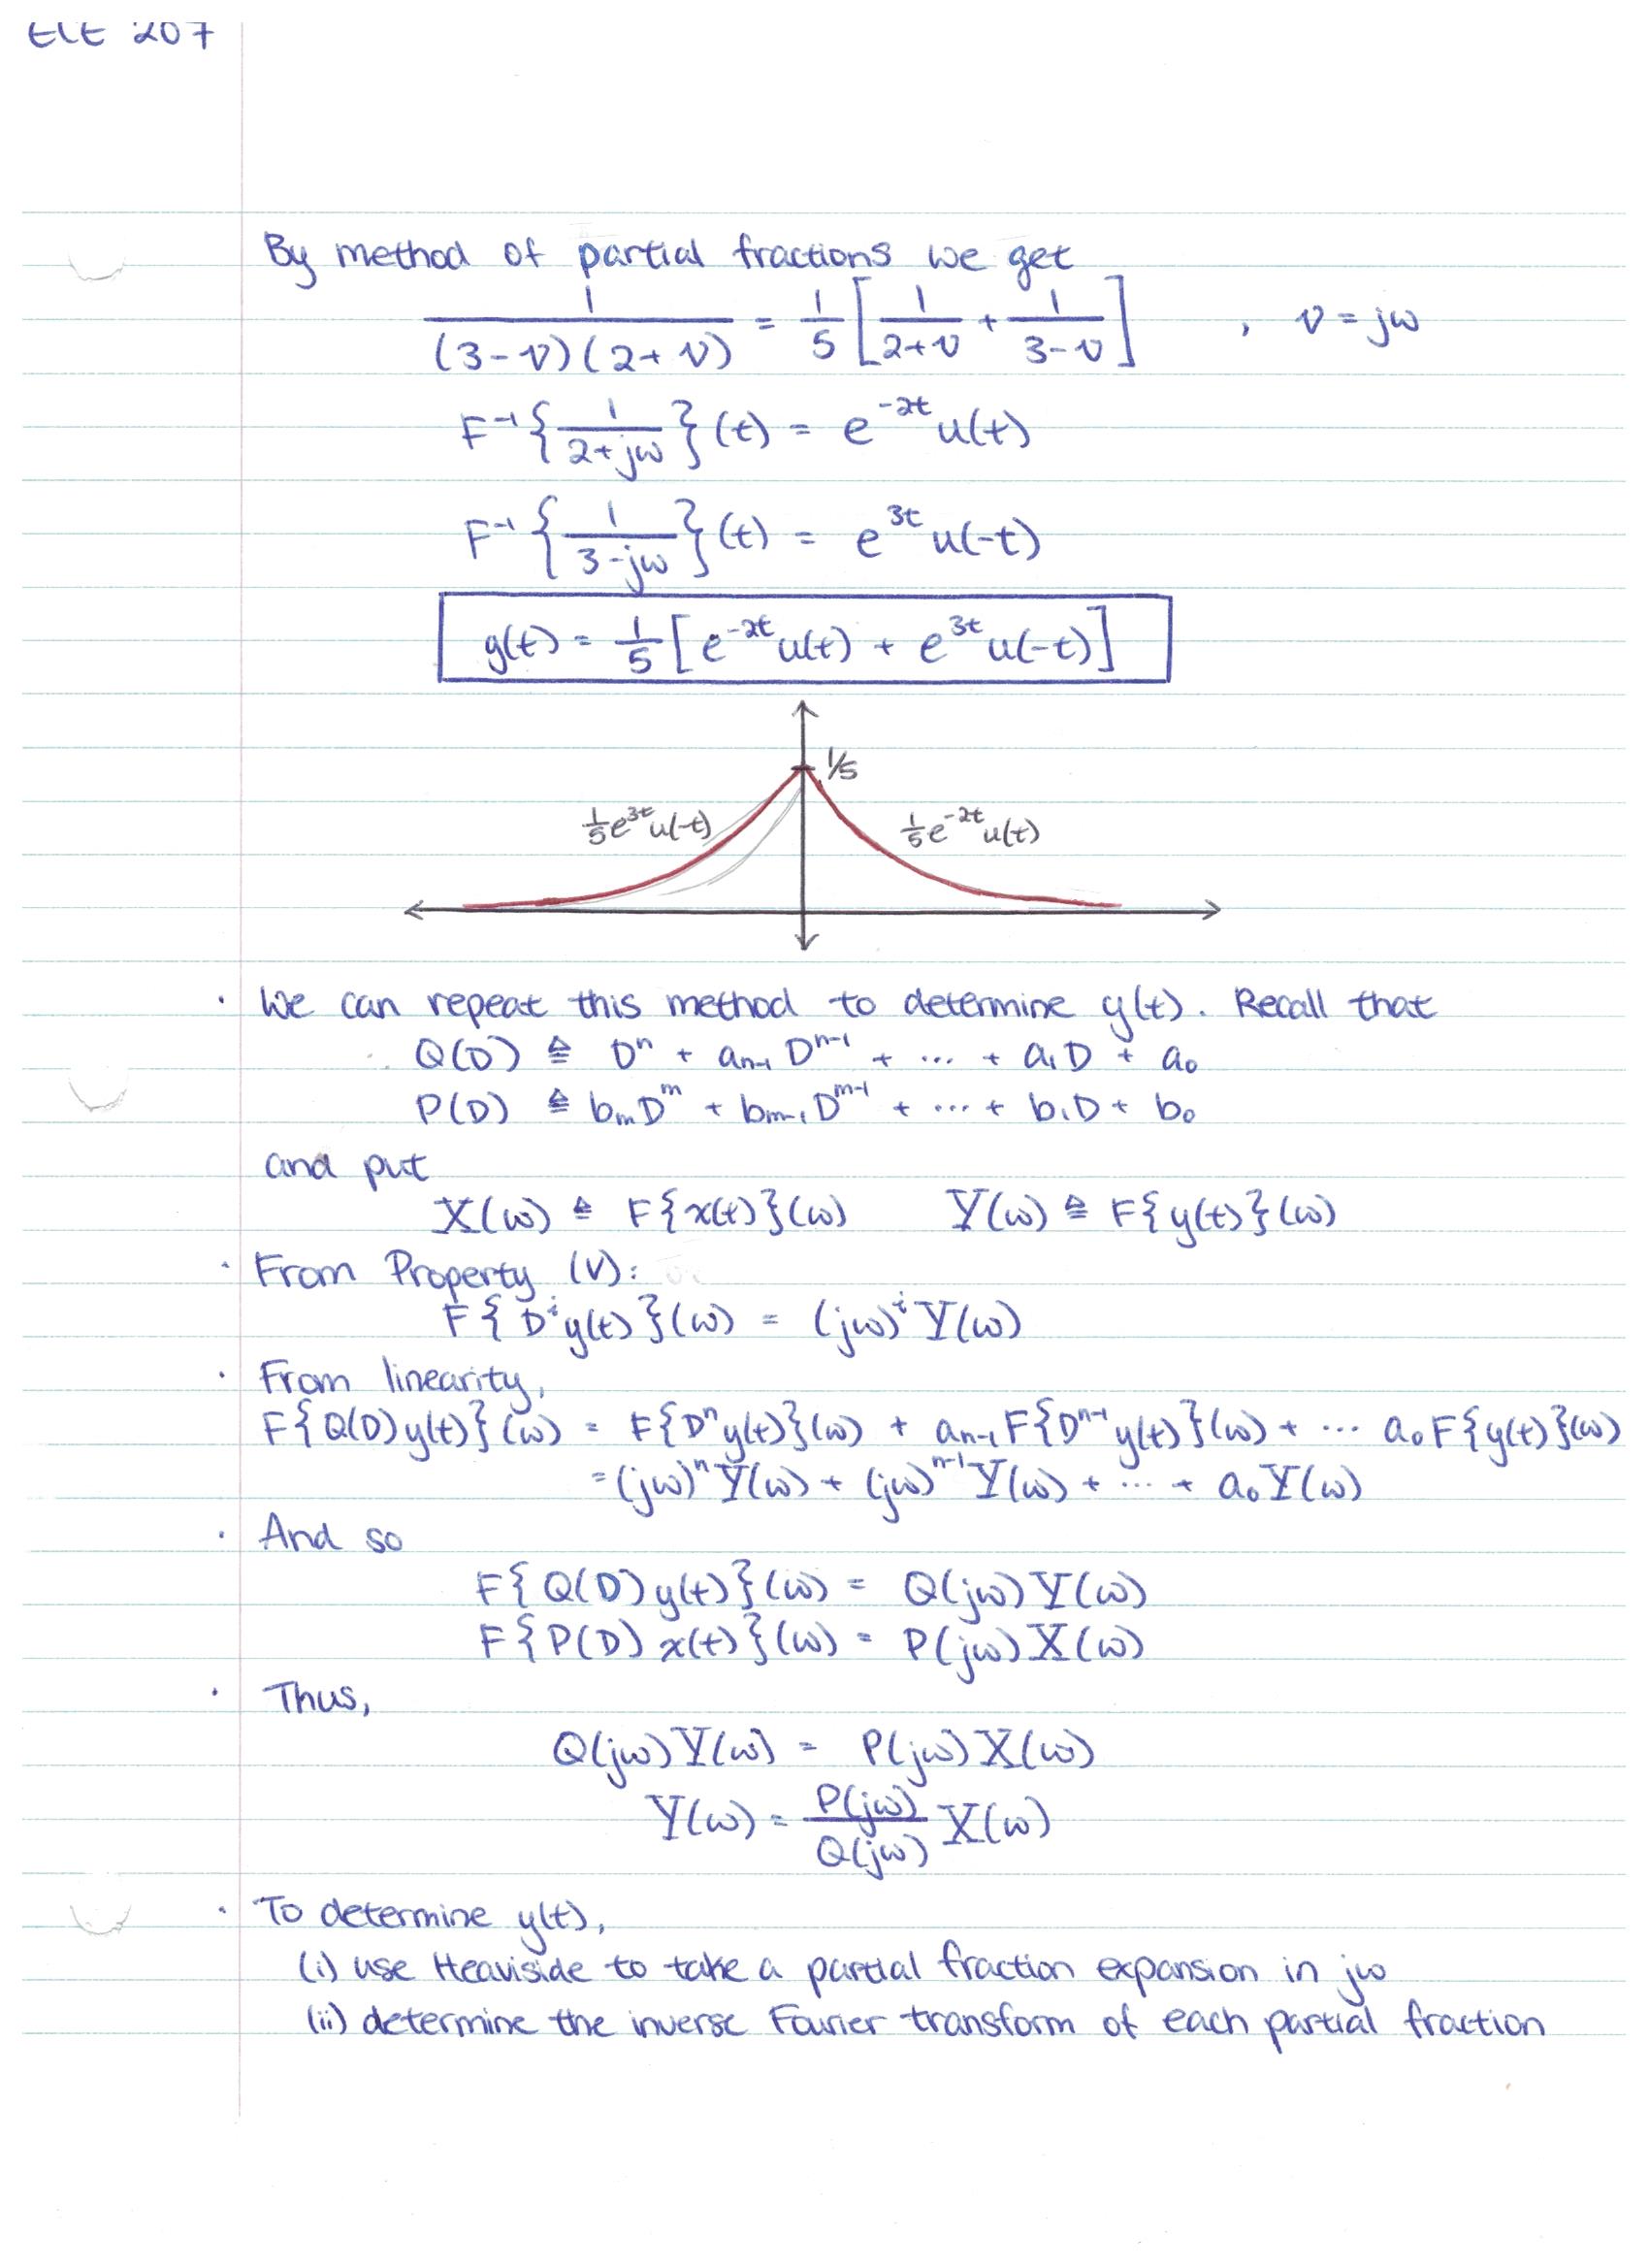 ELE 207
By method of partial fractions we get
1/((3-v)(2+v)) = 1/5 [1/(2+v) + 1/(3-v)] , v = jω
F⁻¹{1/(2+jω)}(t) = e^{-2t} u(t)
F⁻¹{1/(3-jω)}(t) = e^{3t} u(-t)
g(t) = 1/5 [e^{-2t} u(t) + e^{3t} u(-t)]
1/5
1/5 e^{3t} u(-t) 1/5 e^{-2t} u(t)
· We can repeat this method to determine y(t). Recall that
Q(D) ≙ Dⁿ + a_{n-1} D^{n-1} + ... + a₁D + a₀
P(D) ≙ b_m D^m + b_{m-1} D^{m-1} + ... + b₁D + b₀
and put
X(ω) ≙ F{x(t)}(ω) Y(ω) ≙ F{y(t)}(ω)
· From Property (V):
F{D^i y(t)}(ω) = (jω)^i Y(ω)
· From linearity,
F{Q(D)y(t)}(ω) = F{Dⁿy(t)}(ω) + a_{n-1} F{D^{n-1} y(t)}(ω) + ... a₀F{y(t)}(ω)
= (jω)ⁿ Y(ω) + (jω)^{n-1} Y(ω) + ... + a₀ Y(ω)
· And so
F{Q(D) y(t)}(ω) = Q(jω) Y(ω)
F{P(D) x(t)}(ω) = P(jω) X(ω)
· Thus,
Q(jω) Y(ω) = P(jω) X(ω)
Y(ω) = P(jω)/Q(jω) X(ω)
· To determine y(t),
(i) use Heaviside to take a partial fraction expansion in jω
(ii) determine the inverse Fourier transform of each partial fraction